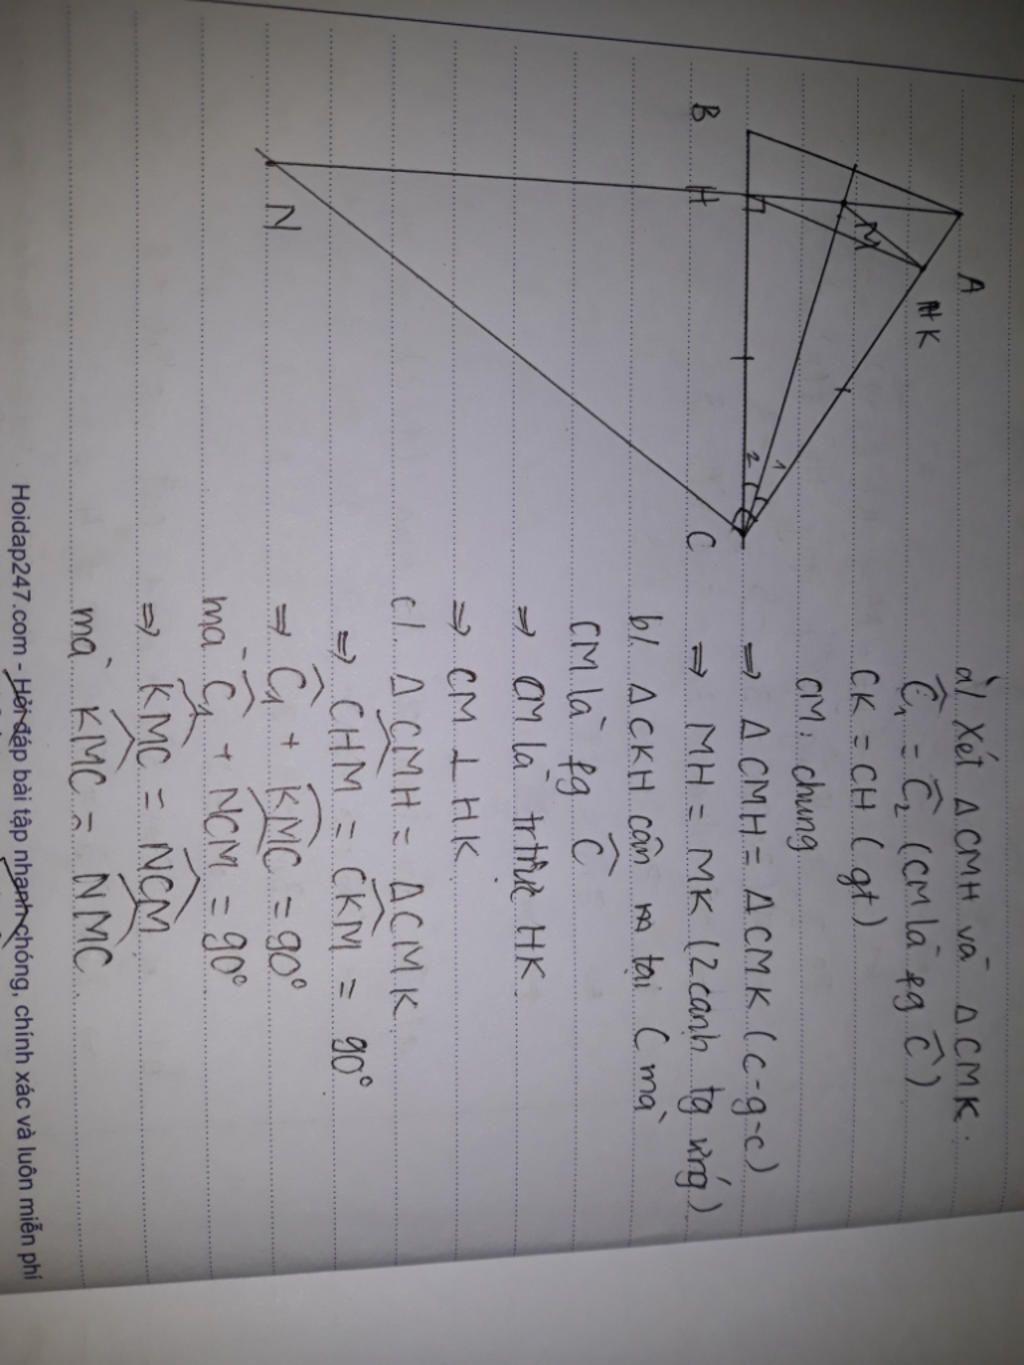 B
A
H
M
K
N
C
1
2
a) Xét Δ CMH và Δ CMK.
Ĉ₁ = Ĉ₂ (CM là fg Ĉ)
CK = CH (gt)
CM: chung
⇒ Δ CMH = Δ CMK (c-g-c)
⇒ MH = MK (2 cạnh tg ứng)
b/. Δ CKH cân tại C mà
CM là fg Ĉ
⇒ CM là tr trực HK.
⇒ CM ⊥ HK
c/. Δ CMH = Δ CMK.
⇒ CHM = CKM = 90°
⇒ Ĉ₁ + KMC = 90°
mà Ĉ₁ + NCM = 90°
⇒ KMC = NCM.
mà KMC = NMC.
Hoidap247.com - Hỏi đáp bài tập nhanh chóng, chính xác và luôn miễn phí